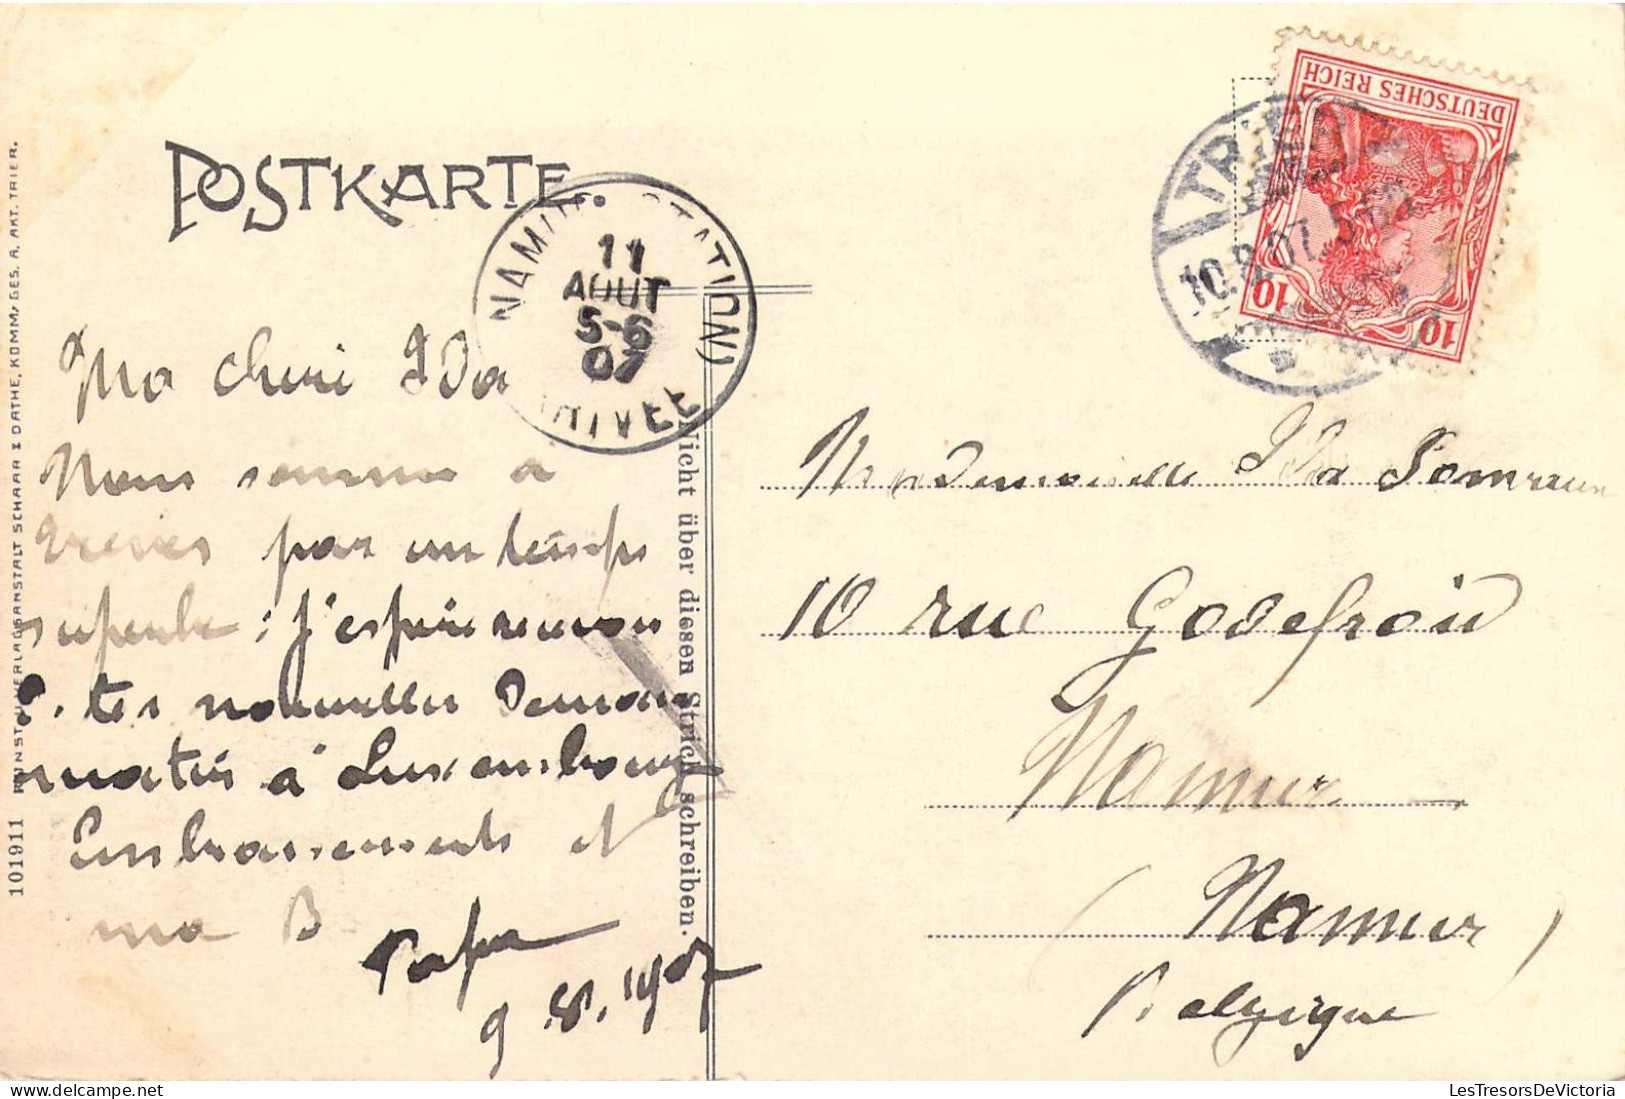 POSTKARTE.
DEUTSCHES REICH
10 10
TRIER
10.8.07. 5-6
NAMUR (STATION)
11
AOUT
5-6
07
ARRIVEE
Ma cheri Ida
Nous somme a
Treves par un temps
superbe : j'espère recevoir
d. tes nouvelles Demain
matin à Luxembourg
Embrassements et
ma B
Papa
9.8.1907
Mademoiselle Ida
10 rue Godefroid
Namur
(Namur)
Belgique
Nicht über diesen Strich schreiben.
101911 KUNST-VERLAGSANSTALT SCHAAR & DATHE, KOMM.-GES. A. AKT. TRIER.
LesTresorsDeVictoria